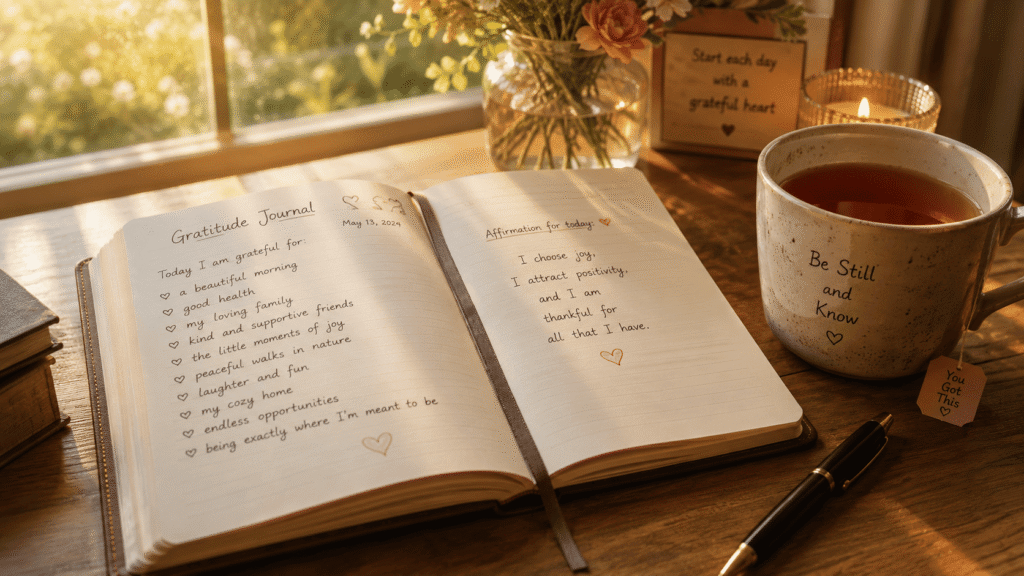 Gratitude Journal
May 13, 2024
Today I am grateful for:
a beautiful morning
good health
my loving family
kind and supportive friends
the little moments of joy
peaceful walks in nature
laughter and fun
my cozy home
endless opportunities
being exactly where I'm meant to be
Affirmation for today:
I choose joy,
I attract positivity,
and I am
thankful for
all that I have.
Start each day
with a
grateful heart
Be Still
and
Know
You
Got
This